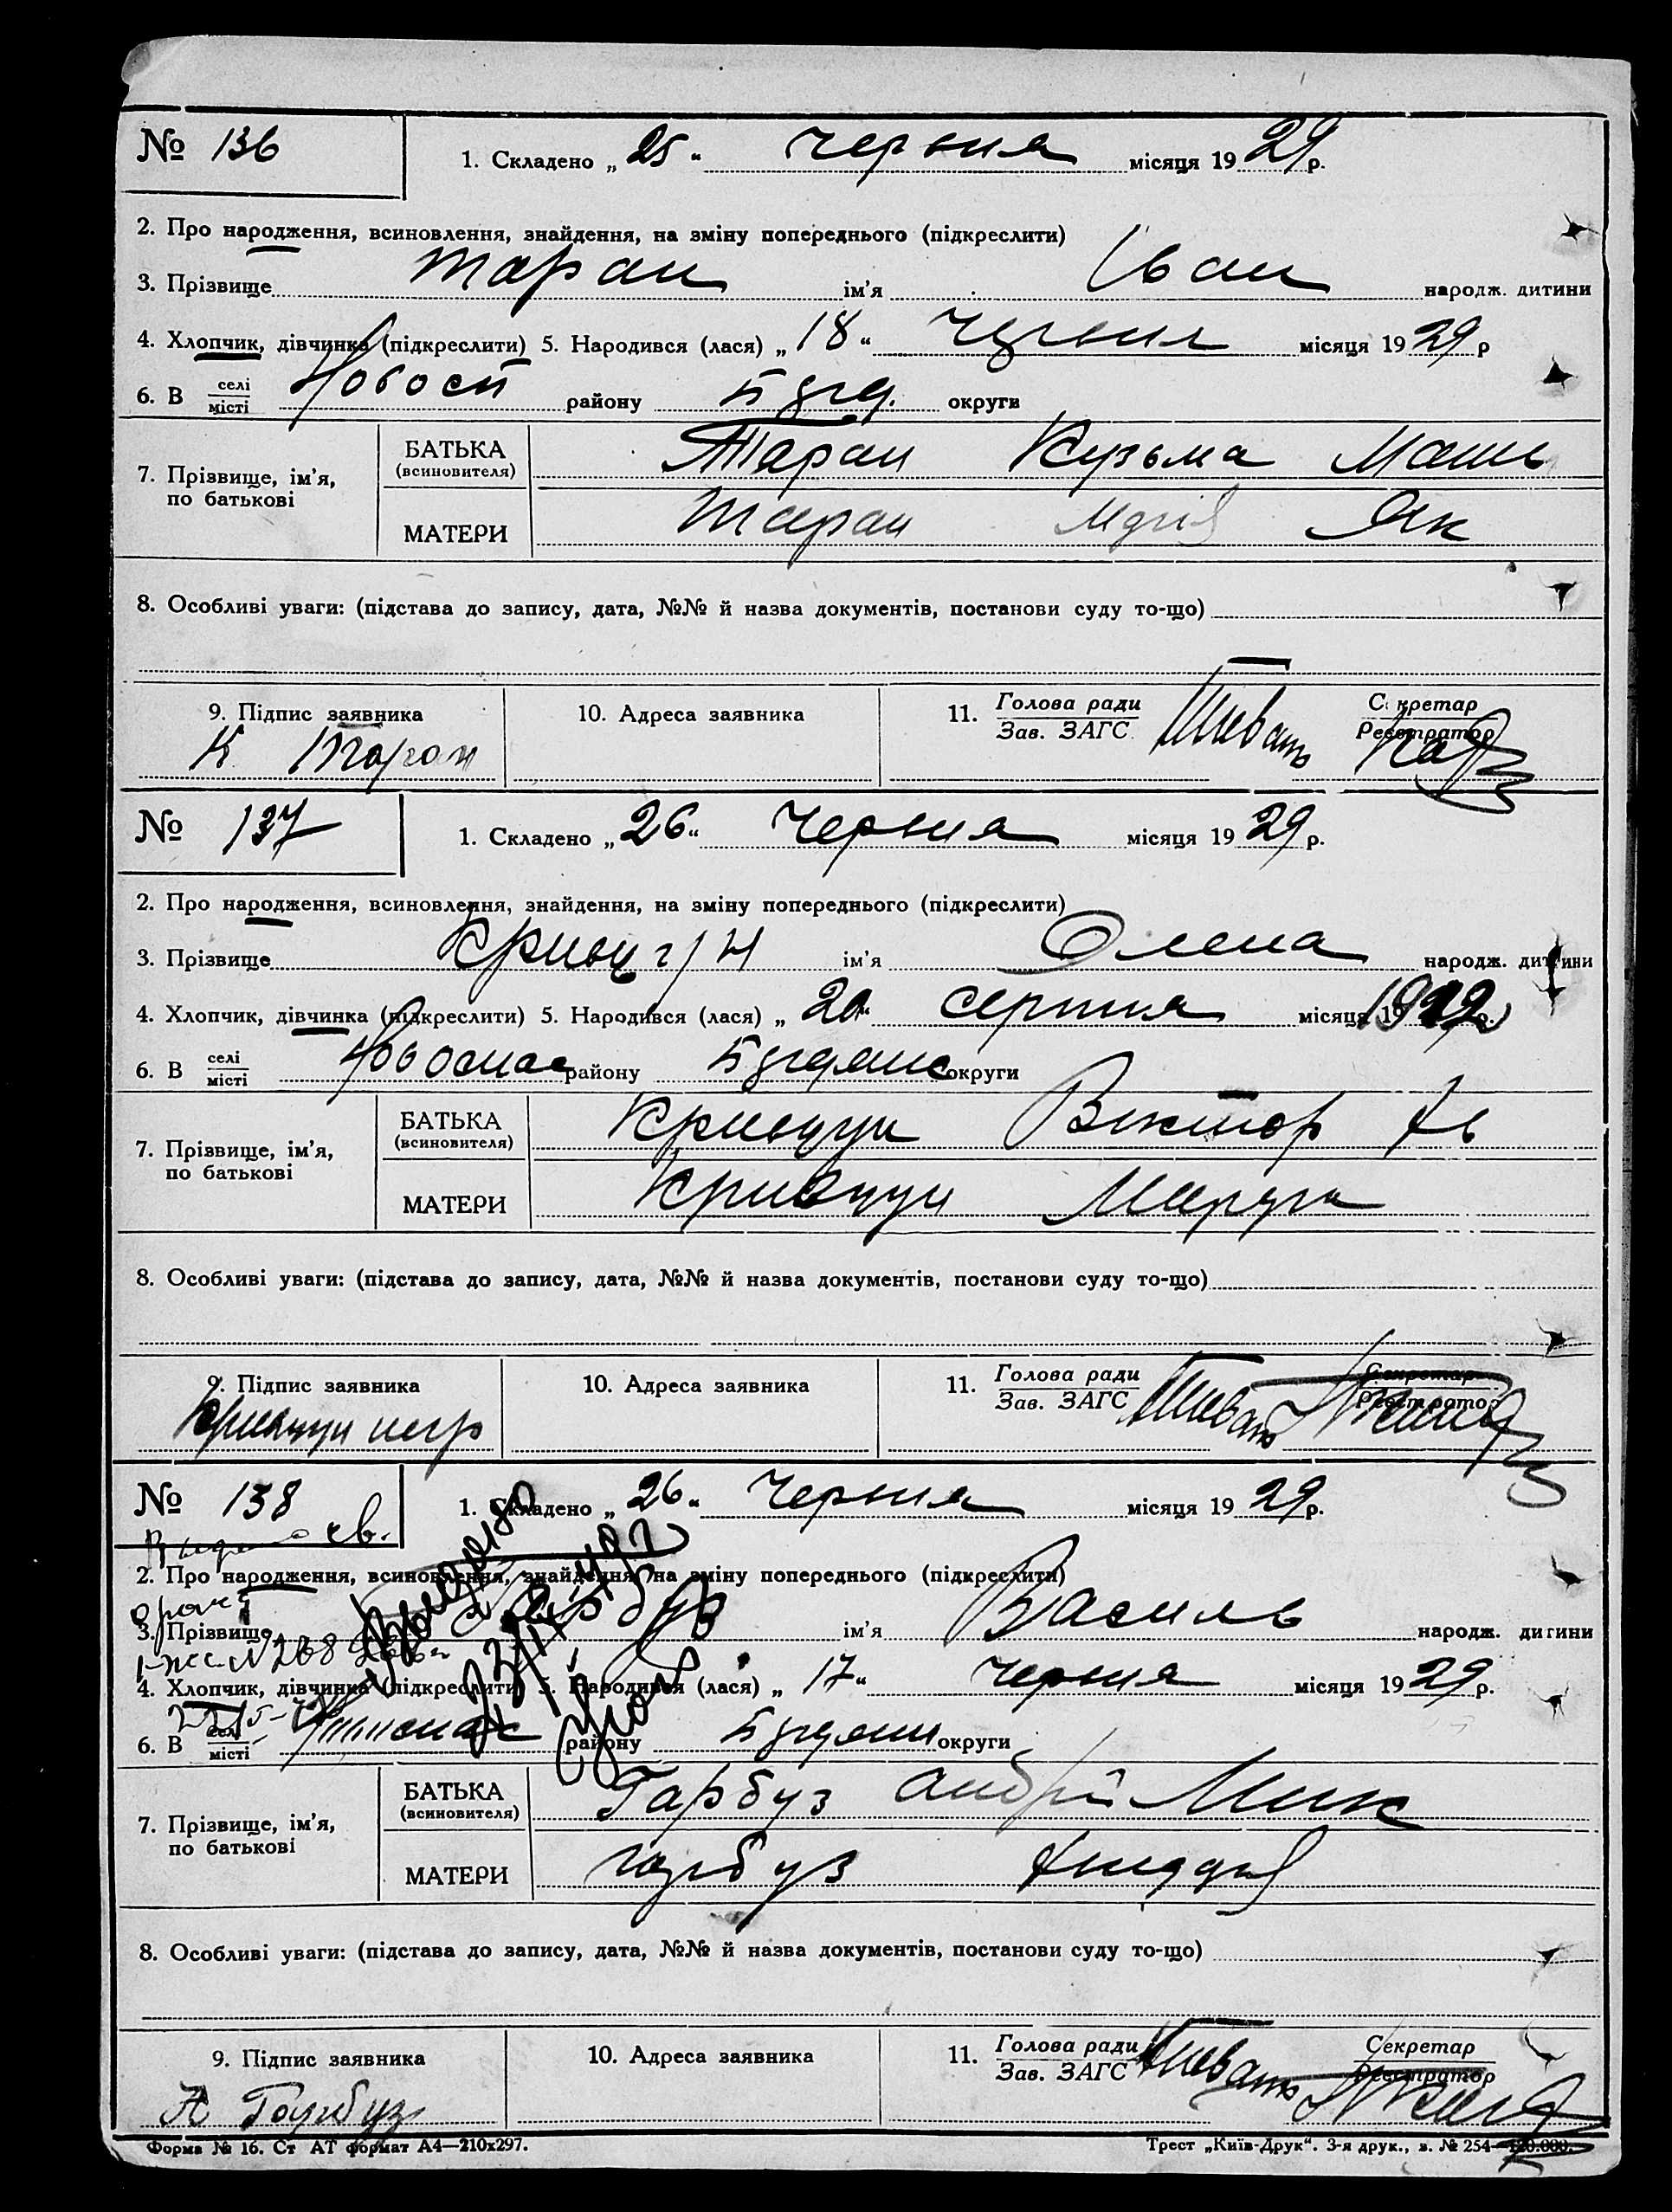 № 136
1. Складено „ 25 “ червня місяця 19 29 р.
2. Про народження, всиновлення, знайдення, на зміну попереднього (підкреслити)
3. Прізвище Таран ім’я Іван народж. дитини
4. Хлопчик, дівчинка (підкреслити) 5. Народився (лася) „ 18 “ червня місяця 19 29 р
6. В селі/місті Новосп району округи
7. Прізвище, ім’я, по батькові
БАТЬКА (всиновителя) Таран Кузьма
МАТЕРИ Таран Як
8. Особливі уваги: (підстава до запису, дата, №№ й назва документів, постанови суду то-що)
9. Підпис заявника 10. Адреса заявника 11. Голова ради Зав. ЗАГС Секретар Реєстратор
К Таран
№ 137
1. Складено „ 26 “ червня місяця 19 29 р.
2. Про народження, всиновлення, знайдення, на зміну попереднього (підкреслити)
3. Прізвище Кривцун ім’я Олена народж. дитини
4. Хлопчик, дівчинка (підкреслити) 5. Народився (лася) „ 20 “ серпня місяця 19 р.
6. В селі/місті Новоспас району округи
7. Прізвище, ім’я, по батькові
БАТЬКА (всиновителя) Кривцун Віктор
МАТЕРИ Кривцун
8. Особливі уваги: (підстава до запису, дата, №№ й назва документів, постанови суду то-що)
9. Підпис заявника 10. Адреса заявника 11. Голова ради Зав. ЗАГС Секретар Реєстратор
Кривцун
№ 138
1. Складено „ 26 “ червня місяця 19 29 р.
св.
2. Про народження, всиновлення, знайдення, на зміну попереднього (підкреслити)
3. Прізвище Гарбуз ім’я Василь народж. дитини
4. Хлопчик, дівчинка (підкреслити) 5. Народився (лася) „ 17 “ червня місяця 19 29 р.
6. В селі/місті району округи
7. Прізвище, ім’я, по батькові
БАТЬКА (всиновителя) Гарбуз Андрій Мик
МАТЕРИ Гарбуз
8. Особливі уваги: (підстава до запису, дата, №№ й назва документів, постанови суду то-що)
9. Підпис заявника 10. Адреса заявника 11. Голова ради Зав. ЗАГС Секретар Реєстратор
А Гарбуз
Форма № 16. Ст АТ формат А4—210х297. Трест „Київ-Друк“. 3-я друк., з. № 254—120.000.